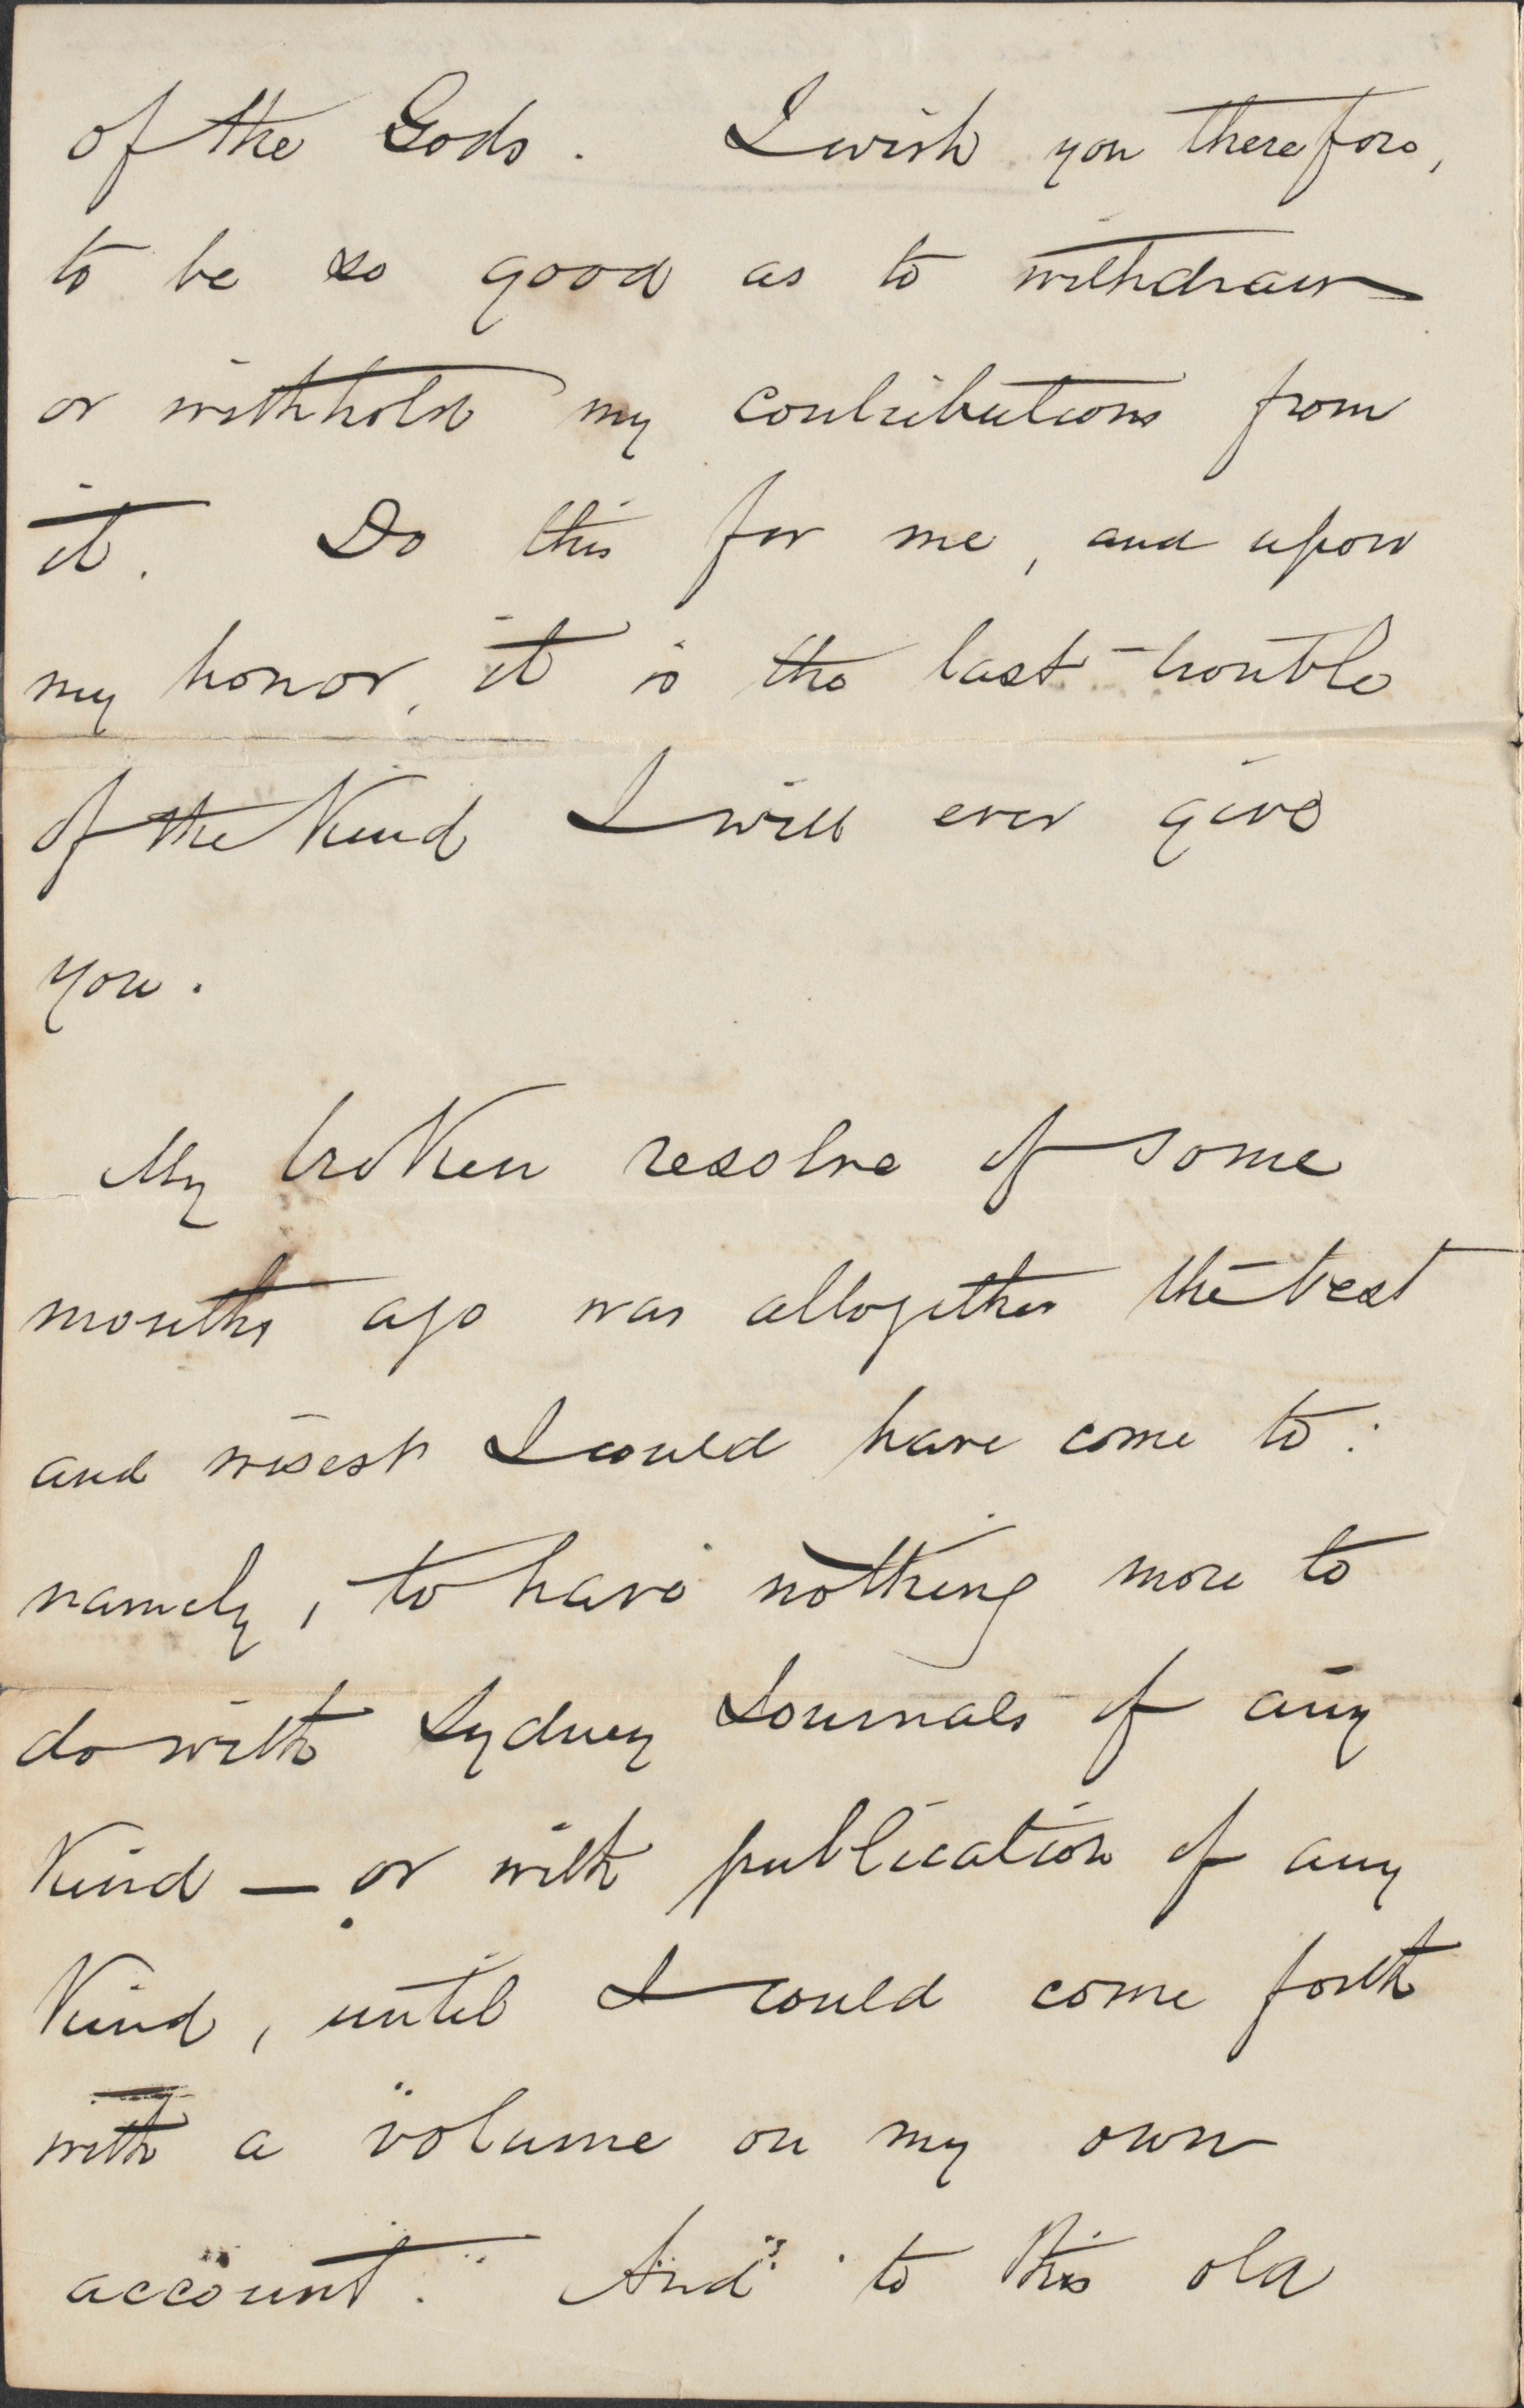 of the Gods. I wish you therefore,
to be so good as to withdraw
or withhold my contributions from
it. Do this for me, and upon
my honor, it is the last trouble
of the kind I will ever give
you.
My broken resolve of some
months ago was altogether the best
and wisest I could have come to:
namely, to have nothing more to
do with Sydney Journals of any
kind — or with publication of any
kind, until I could come forth
with a volume on my own
account. And to this old